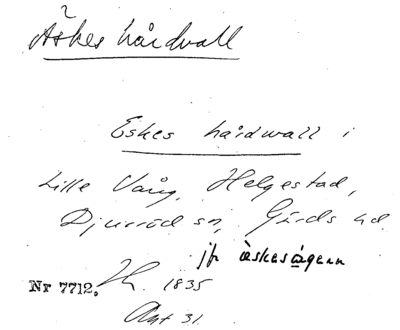 Äskes hårdvall
Eskes hårdwall i
Lille Vång, Helgestad,
Djurröd sn, Gärds hd.
jfr äskesägern
Nr 7712. Lh. 1835
Akt 31.